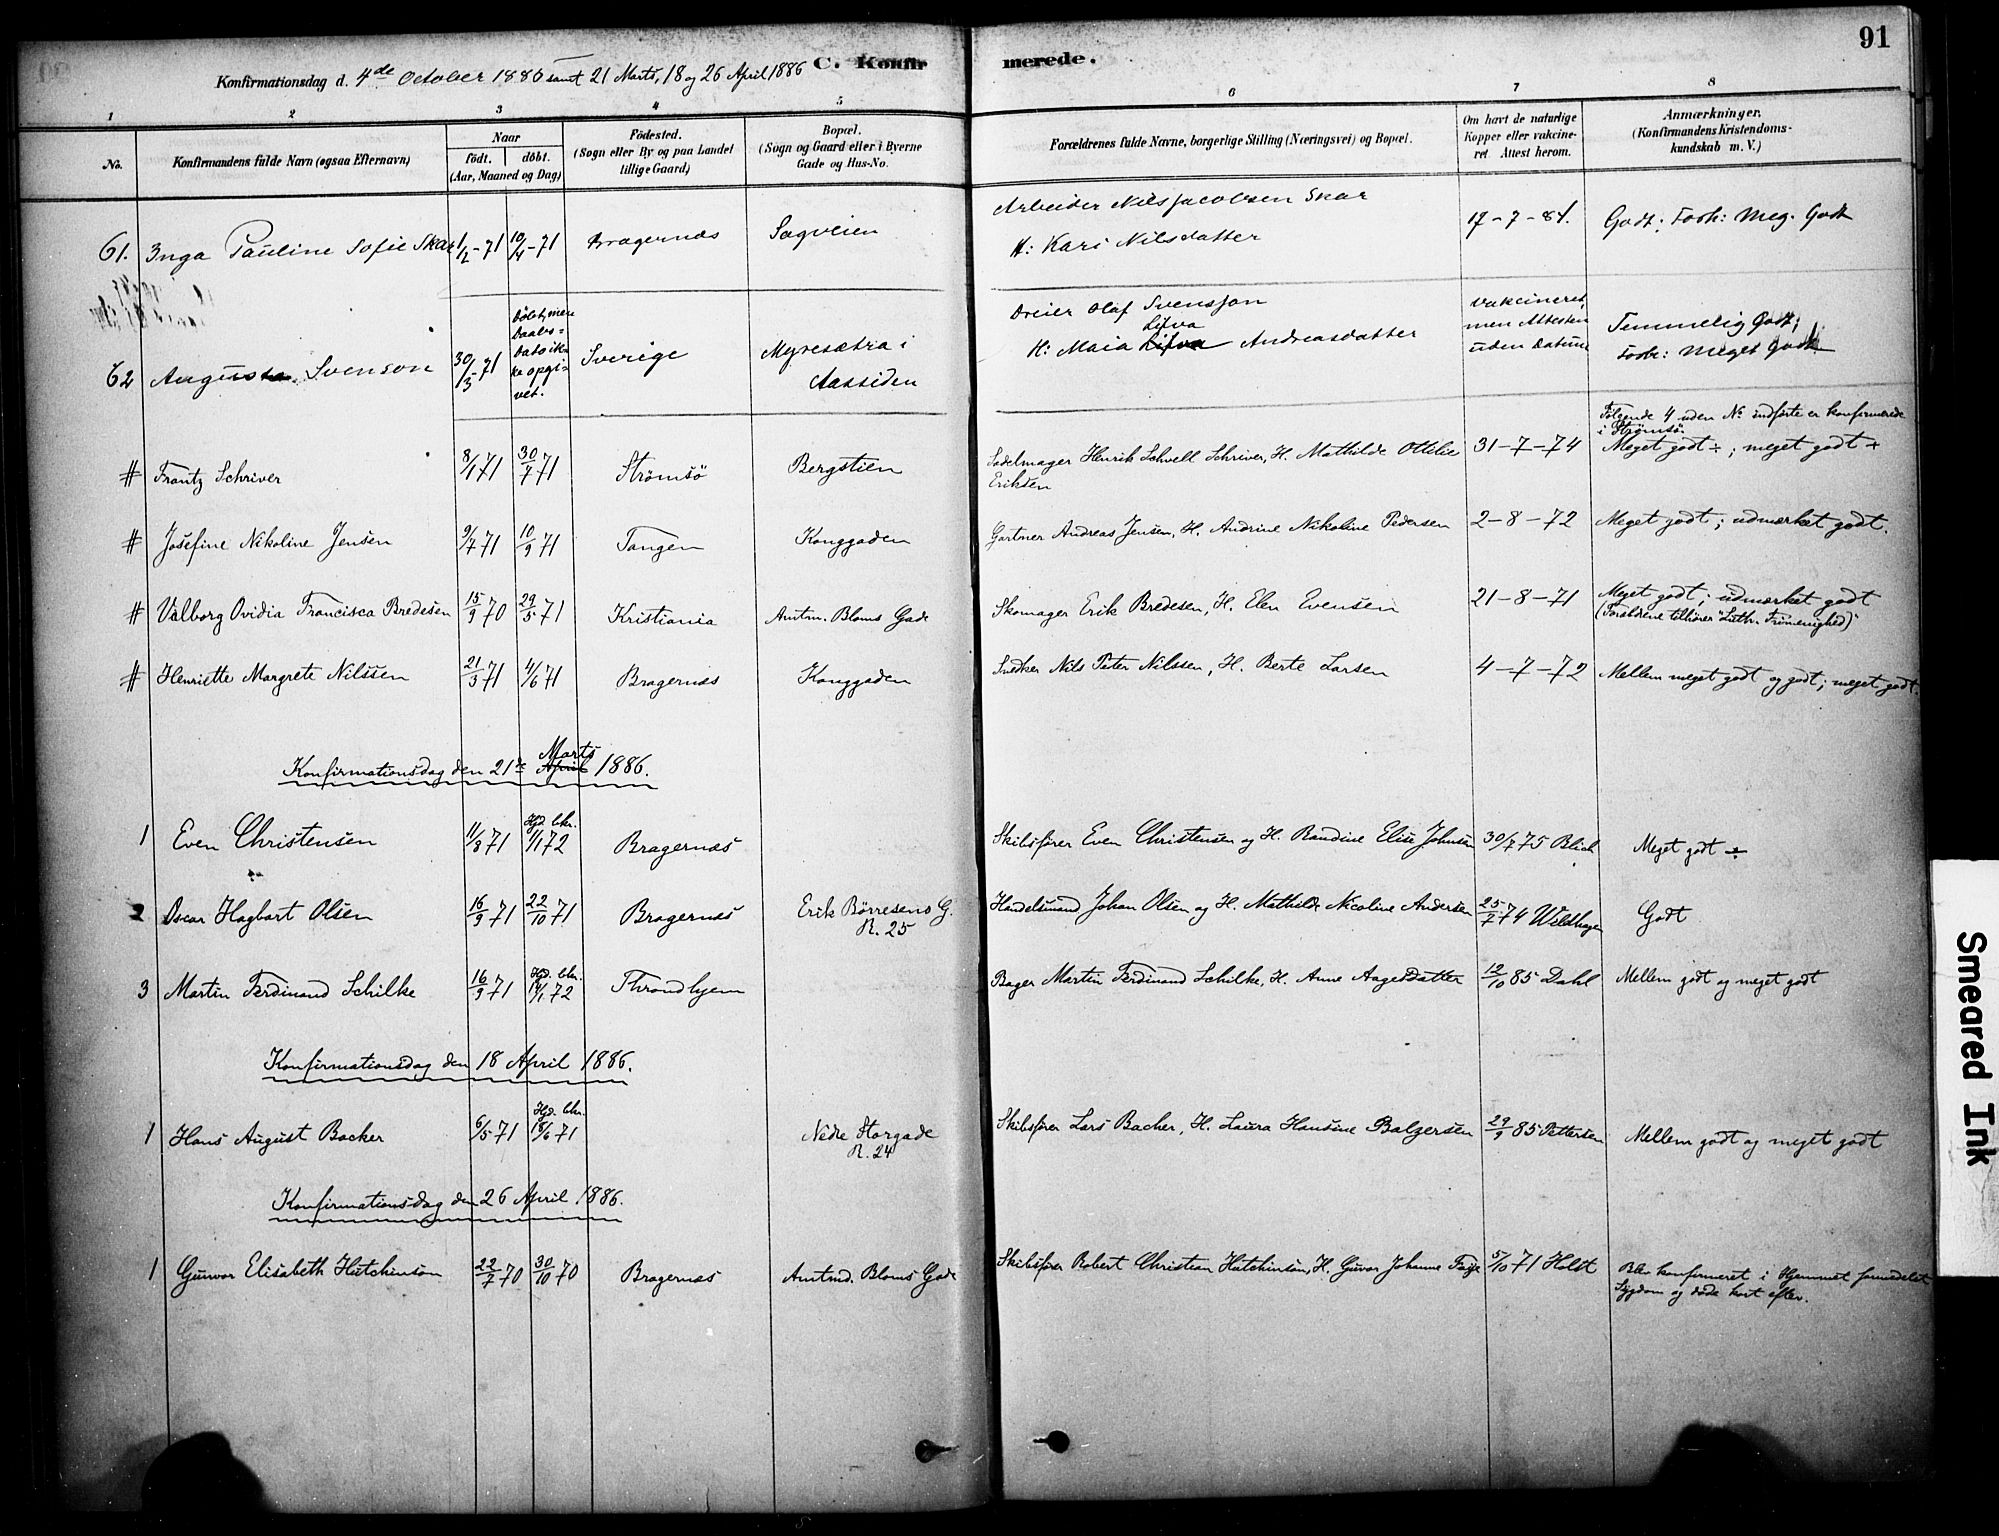 91
C. Konfirmerede.
Konfirmationsdag d. 4de October 1886 samt 21 Marts, 18 og 26 April 1886
1 2 3 4 5 6 7 8
No.
Konfirmandens fulde Navn (ogsaa Efternavn)
Naar
födt. döbt.
(Aar, Maaned og Dag)
Födested.
(Sogn eller By og paa Landet
tillige Gaard)
Bopæl.
(Sogn og Gaard eller i Byerne
Gade og Hus-No.
Forældrenes fulde Navne, borgerlige Stilling (Næringsvei) og Bopæl.
Om havt de naturlige
Kopper eller vakcine-
ret Attest herom.
Anmærkninger.
(Konfirmandens Kristendoms-
kundskab m. V.)
61. Inga Pauline Sofie Skar 1/2-71 10/4-71 Bragernæs Sagveien Arbeider Nils Jacobsen Skar
H: Kari Nilsdatter 17-7-84. Godt; Forh: Meg. Godt
62 Augusta Svenson 30/5 71 Døbt, men
Daabs=
Dato ik=
ke opgi=
vet. Sverige Myresætra i
Aassiden Dreier Olaf Svensson
H: Maia Lisva Andreasdatter
Lisva vakcineret,
men Attesten
uden Datum Temmelig Godt;
Forh: Meget Godt
Følgende 4 uden No indførte er konfirmerede
i Strømsø.
# Frantz Schriver 8/1 71 30/4 71 Strømsö Bergstien Sadelmager Henrik Schvell Schriver, H. Mathilde Ottilie
Eriksen 31-7-74 Meget godt ÷; meget godt +
# Josefine Nikoline Jensen 9/7 71 10/9 71 Tangen Konggaden Gartner Andreas Jensen, H. Andrine Nikoline Pedersen 2-8-72 Meget godt; udmærket godt.
# Valborg Ovidia Francisca Bredesen 15/9 70 29/5 71 Kristiania Amtm. Bloms Gade Skomager Erik Bredesen, H. Elen Evensen 21-8-71 Meget godt; udmærket godt
(Forældrene tilhører "Luth. Frimenighed)"
# Henriette Margrete Nilssen 21/3 71 4/6 71 Bragernæs Konggaden Snedker Nils Peter Nilssen, H. Berte Larsen 4-7-72 Mellem meget godt og godt; meget godt.
Marts
Konfirmationsdag den 21de April 1886.
1 Even Christensen 11/8 71 Hjd. Chr.
1/1 72 Bragernæs Skibsfører Even Christensen og H. Randine Elise Johnsen 30/7 75 Blich Meget godt ÷
2 Oscar Hagbart Olsen 16/9 71 22/10 71 Bragernæs Erik Börresens G.
R. 25 Handelsmand Johan Olsen og H. Mathilde Nicoline Andersen 25/7 74 Wildhagen Godt
3 Martin Ferdinand Schilke 16/9 71 Hjd. Chr.
14/1 72 Throndhjem Bager Martin Ferdinand Schilke, H. Anne Aagesdatter 12/10 85 Dahl Mellem godt og meget godt
Konfirmationsdag den 18 April 1886.
1 Hans August Backer 6/5 71 Hjd. Chr.
18/6 71 Nedre Storgade
R. 24 Skibsfører Lars Backer, H. Laura Hansine Balzersen 29/9 85 Pettersen Mellem godt og meget godt
Konfirmationsdag den 26 April 1886.
1 Gunvor Elisabeth Hutchinson 22/7 70 30/10 70 Bragernæs Amtmd. Bloms Gade Skibsfører Robert Christian Hutchinson, H. Guvor Johanne 5/10 71 Holst Blev konfirmeret i Hjemmet formedelst
Sygdom og døde kort efter.
Smeared Ink